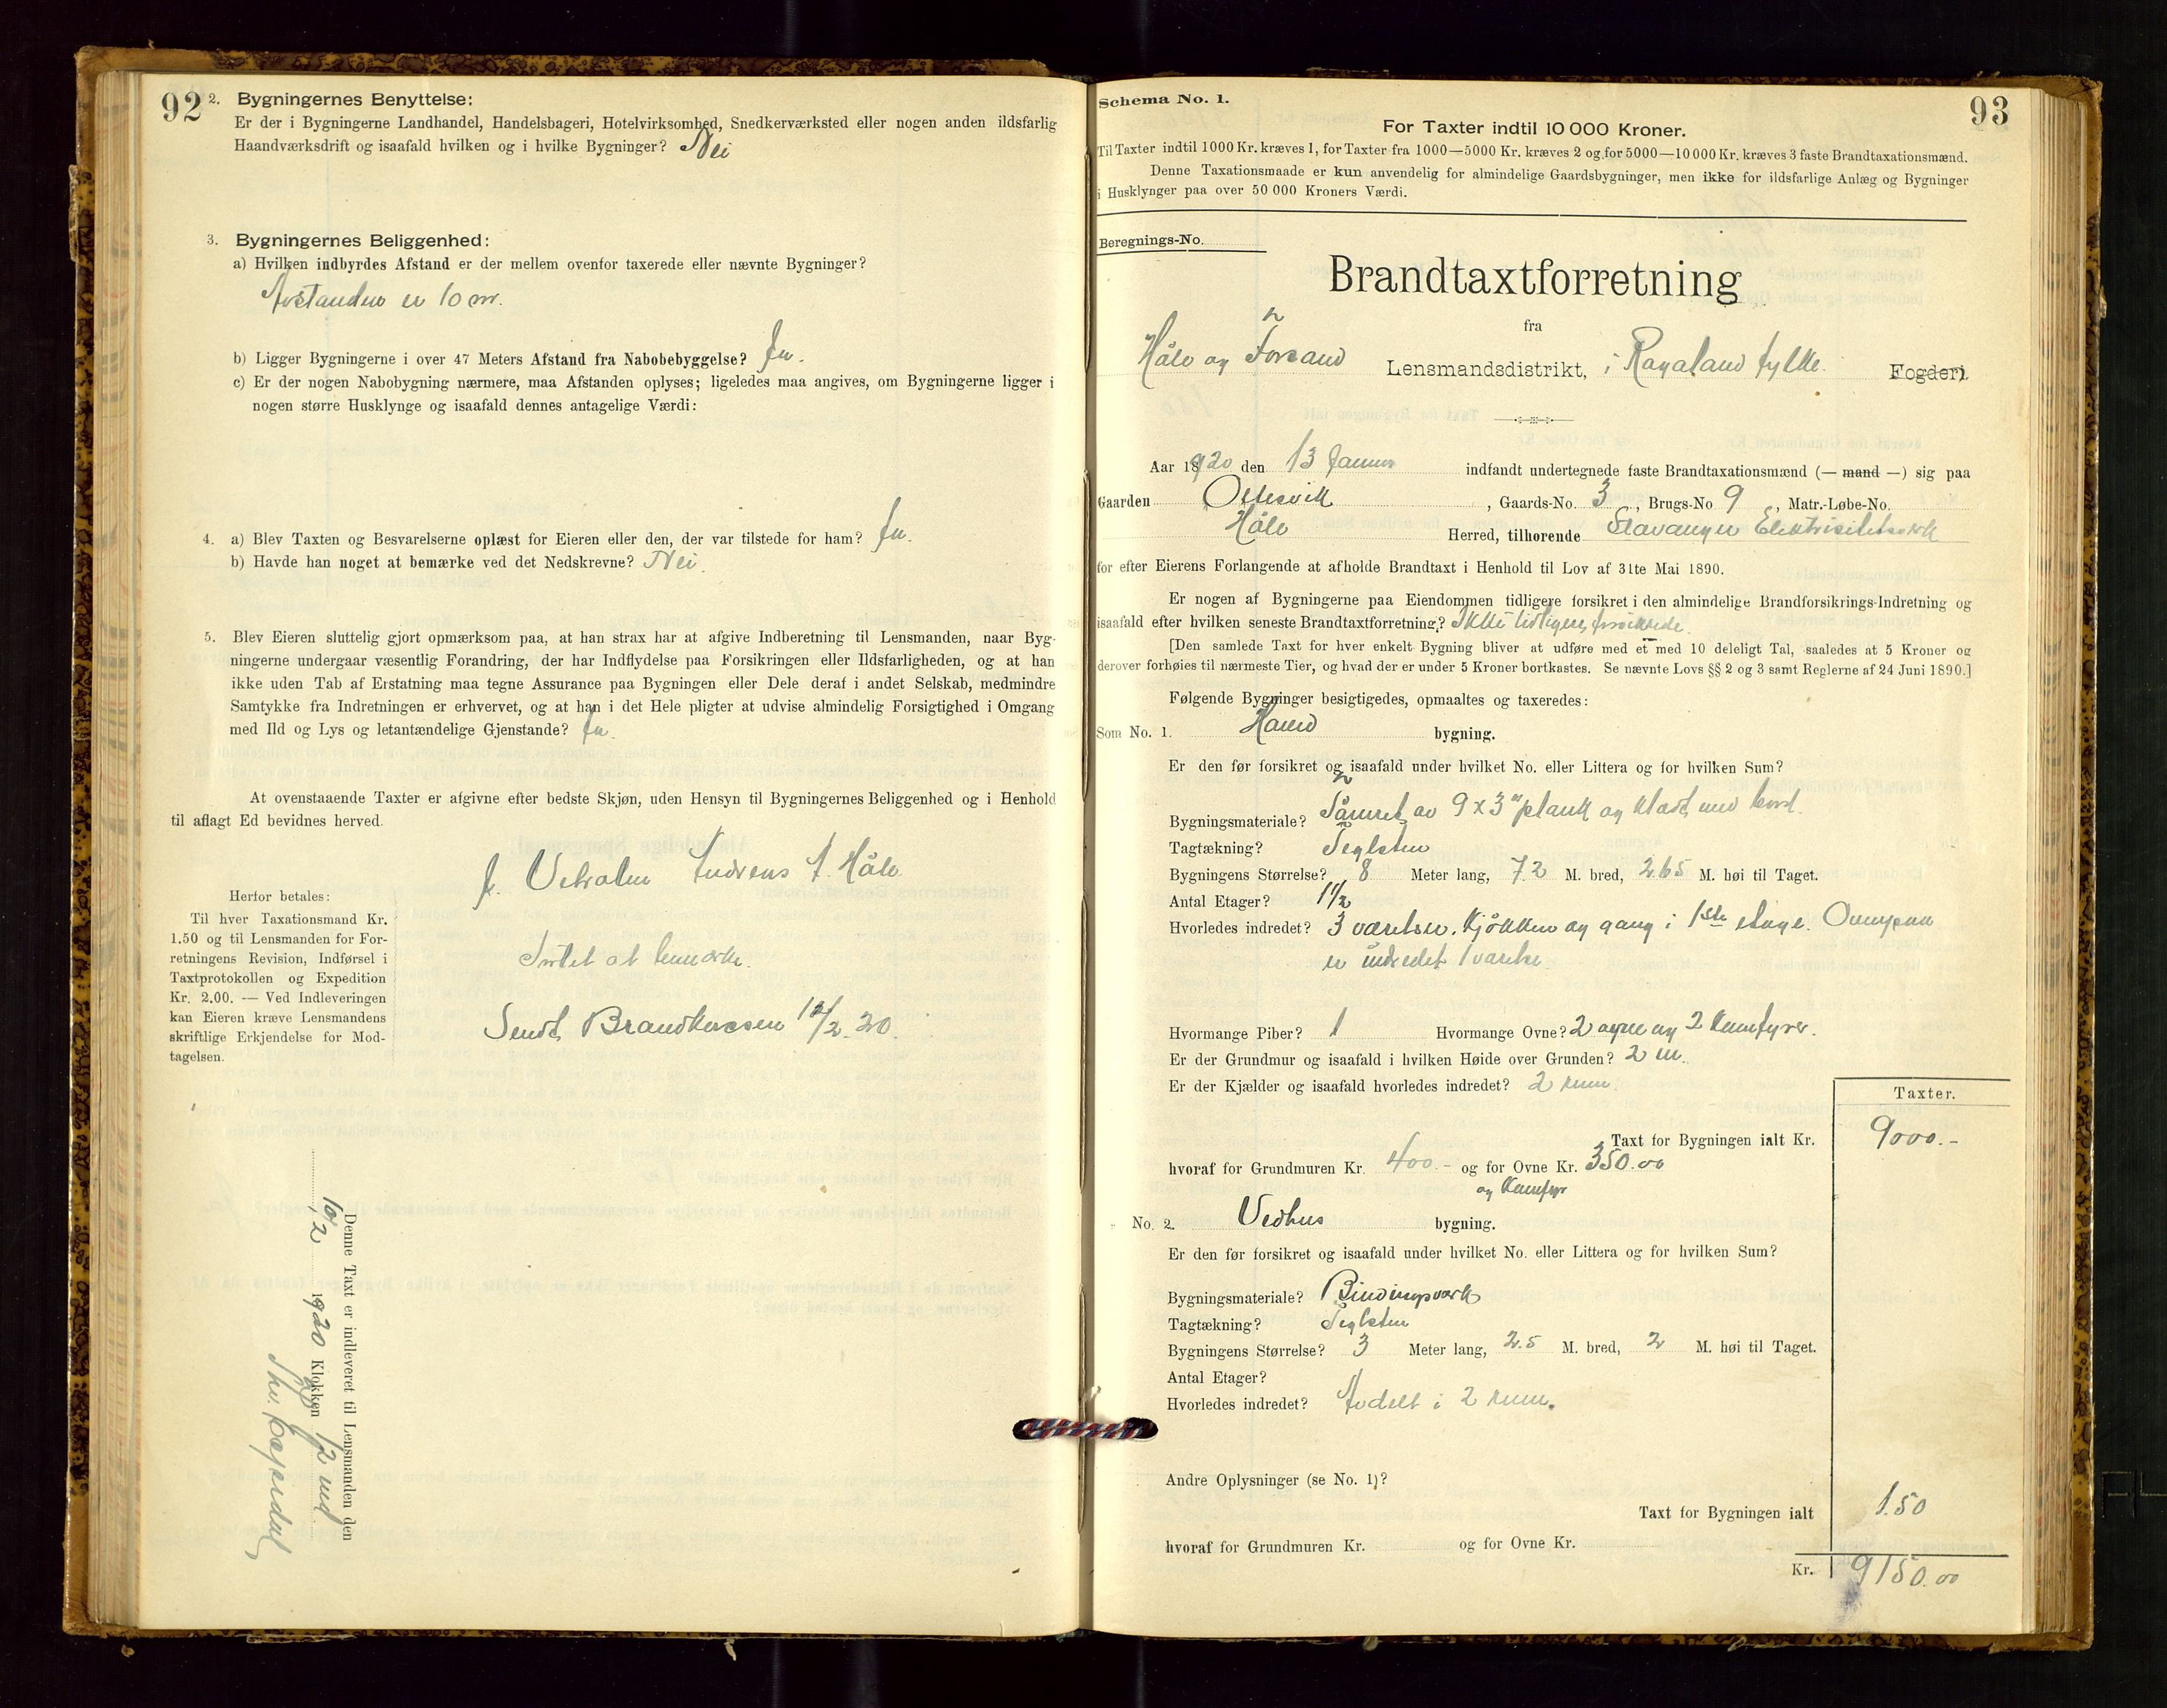 92
2. Bygningernes Benyttelse:
Er der i Bygningerne Landhandel, Handelsbageri, Hotelvirksomhed, Snedkerværksted eller nogen anden ildsfarlig
Haandværksdrift og isaafald hvilken og i hvilke Bygninger? Nei
3. Bygningernes Beliggenhed:
a) Hvilken indbyrdes Afstand er der mellem ovenfor taxerede eller nævnte Bygninger?
Avstanden er 10 m.
b) Ligger Bygningerne i over 47 Meters Afstand fra Nabobebyggelse? Ja.
c) Er der nogen Nabobygning nærmere, maa Afstanden oplyses; ligeledes maa angives, om Bygningerne ligger i
nogen større Husklynge og isaafald dennes antagelige Værdi:
4. a) Blev Taxten og Besvarelserne oplæst for Eieren eller den, der var tilstede for ham? Ja.
b) Havde han noget at bemærke ved det Nedskrevne? Nei.
5. Blev Eieren sluttelig gjort opmærksom paa, at han strax har at afgive Indberetning til Lensmanden, naar Byg-
ningerne undergaar væsentlig Forandring, der har Indflydelse paa Forsikringen eller Ildsfarligheden, og at han
ikke uden Tab af Erstatning maa tegne Assurance paa Bygningen eller Dele deraf i andet Selskab, medmindre
Samtykke fra Indretningen er erhvervet, og at han i det Hele pligter at udvise almindelig Forsigtighed i Omgang
med Ild og Lys og letantændelige Gjenstande? Ja.
At ovenstaaende Taxter er afgivne efter bedste Skjøn, uden Hensyn til Bygningernes Beliggenhed og i Henhold
til aflagt Ed bevidnes herved.
Håle
Herfor betales:
Til hver Taxationsmand Kr.
1.50 og til Lensmanden for For-
retningens Revision, Indførsel i
Taxtprotokollen og Expedition
Kr. 2.00. — Ved Indleveringen
kan Eieren kræve Lensmandens
skriftlige Erkjendelse for Mod-
tagelsen.
Intet at bemærke.
Sendt Brandkassen 12/2 20.
Denne Taxt er indleveret til Lensmanden den
10/2 1920 Klokken 12 md
93
Schema No. 1.
For Taxter indtil 10 000 Kroner.
Til Taxter indtil 1000 Kr. kræves 1, for Taxter fra 1000—5000 Kr. kræves 2 og for 5000—10 000 Kr. kræves 3 faste Brandtaxationsmænd.
Denne Taxationsmaade er kun anvendelig for almindelige Gaardsbygninger, men ikke for ildsfarlige Anlæg og Bygninger
i Husklynger paa over 50 000 Kroners Værdi.
Beregnings-No.
Brandtaxtforretning
fra
Håle og Forsand Lensmandsdistrikt, i Rogaland fylke Fogderi.
Aar 1920 den 13 Januar indfandt undertegnede faste Brandtaxationsmænd (— mand —) sig paa
Gaarden Oltesvik, Gaards-No. 3, Brugs-No 9, Matr.-Løbe-No.
Håle Herred, tilhørende Stavanger Elektrisitetsverk
for efter Eierens Forlangende at afholde Brandtaxt i Henhold til Lov af 31te Mai 1890.
Er nogen af Bygningerne paa Eiendommen tidligere forsikret i den almindelige Brandforsikrings-Indretning og
isaafald efter hvilken seneste Brandtaxtforretning? Ikke tidligere forsikrede.
[Den samlede Taxt for hver enkelt Bygning bliver at udføre med et med 10 deleligt Tal, saaledes at 5 Kroner og
derover forhøies til nærmeste Tier, og hvad der er under 5 Kroner bortkastes. Se nævnte Lovs §§ 2 og 3 samt Reglerne af 24 Juni 1890.]
Følgende Bygninger besigtigedes, opmaaltes og taxeredes:
Som No. 1. Hoved bygning.
Er den før forsikret og isaafald under hvilket No. eller Littera og for hvilken Sum?
Bygningsmateriale? Tømret av 9 x 3" plank og klædt med bord.
Tagtækning? Teglsten
Bygningens Størrelse? 8 Meter lang, 7.2 M. bred, 2.65 M. høi til Taget.
Antal Etager? 1 1/2
Hvorledes indredet? 3 værelser, kjøkken og gang i 1ste etage. Ovenpaa
er indredet 1 værelse.
Hvormange Piber? 1 Hvormange Ovne? 2 ovne og 2 komfyrer.
Er der Grundmur og isaafald i hvilken Høide over Grunden? 2 m.
Er der Kjælder og isaafald hvorledes indredet? 2 rum.
Taxter.
Taxt for Bygningen ialt Kr. 9000.-
hvoraf for Grundmuren Kr. 400.- og for Ovne Kr. 350.00
og komfyr
No. 2. Vedhus bygning.
Er den før forsikret og isaafald under hvilket No. eller Littera og for hvilken Sum?
Bygningsmateriale? Bindingsverk
Tagtækning? Teglsten
Bygningens Størrelse? 3 Meter lang, 2.5 M. bred, 2 M. høi til Taget.
Antal Etager?
Hvorledes indredet? Avdelt i 2 rum.
Andre Oplysninger (se No. 1)?
Taxt for Bygningen ialt 150
hvoraf for Grundmuren Kr. og for Ovne Kr.
Kr. 9150.00